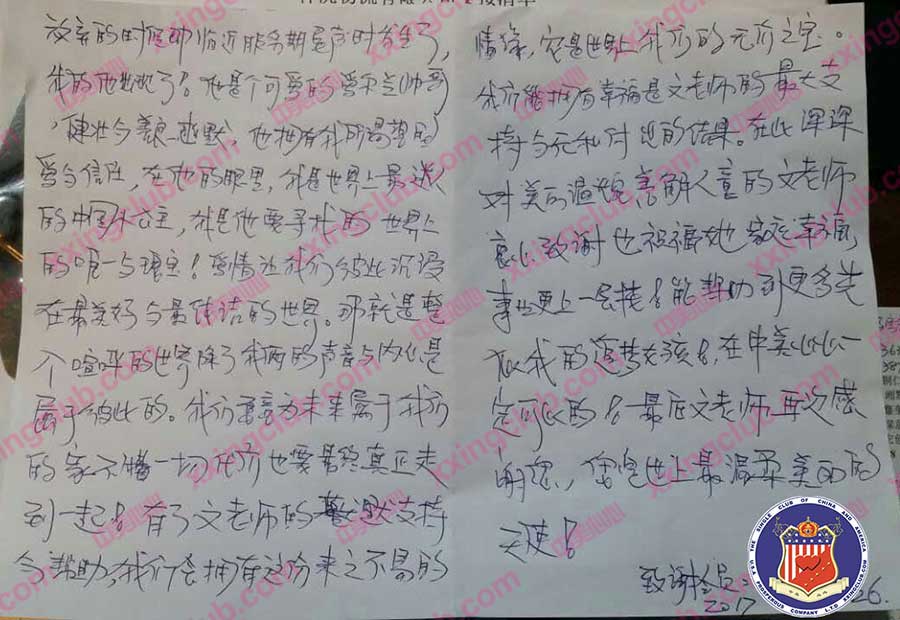 放弃的时候即临近服务期尾声时发生了,
我的他出现了!他是个可爱的
,健壮与善良幽默,他拥有我所渴望的
爱与信任,在他的眼里,我是世界上最迷
的中国小公主,我是他要寻找的世界上
的唯一与现实!爱情让我们彼此沉浸
在最美好与最传洁的世界。那就是整
个喧哗的世界除了我两的声音与内心是
属于彼此的。我们愿意为未来属于我们
的家不惜一切代价也要最终真正走
到一起!有了文老师的默默支持
与帮助,我们会拥有这份来之不易的
情缘,它是世界上我们的无价之宝。
我们能拥有幸福是文老师的最大支
持与无私付出的结果。在此深深
对美丽温婉善解人意的文老师
衷心致谢也祝福她家庭幸福,
事业更上一层楼!能帮助到更多类
似我的逐梦女孩!在中美心心一
定可以的!最后文老师再次感
谢您,您是世上最温柔美丽的
天使!
致谢会员:
2017 26.
中美心心
xxingclub.com
THE SINGLE CLUB OF CHINA AND AMERICA
U.S.A PROSPEROUS COMPANY LTD XXINGCLUB.COM